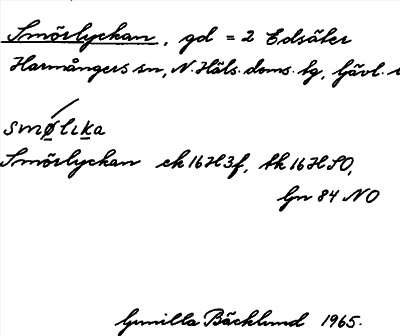 Smörlyckan, gd = 2 Edsäter
Harmångers sn, N. Häls. doms. tg, Gävl.
smølika
Smörlyckan ek 16H3f, tk 16H SO,
Gn 84 NO
Gunilla Bäcklund 1965.